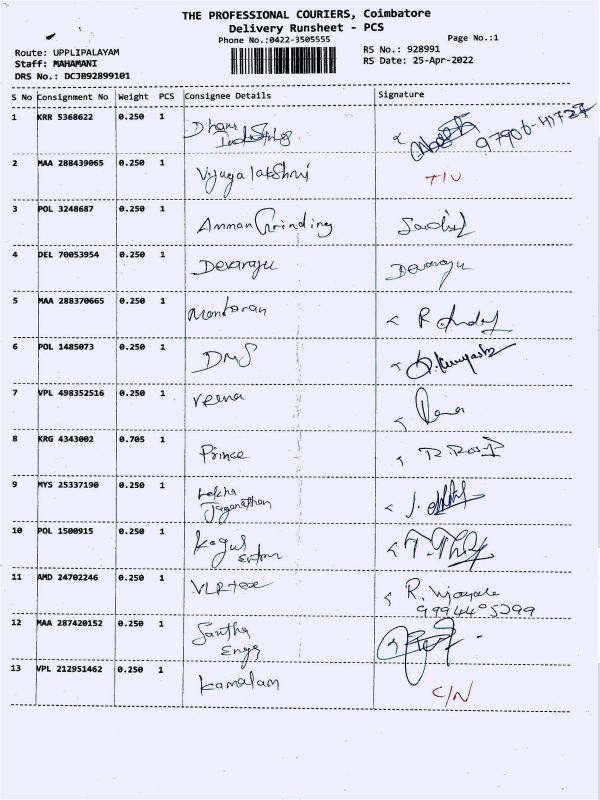 THE PROFESSIONAL COURIERS, Coimbatore
Delivery Runsheet - PCS
Phone No.:0422-3505555
Page No.:1
Route: UPPLIPALAYAM
Staff: MAHAMANI
DRS No.: DCJB92899101
RS No.: 928991
RS Date: 25-Apr-2022
S No Consignment No Weight PCS Consignee Details Signature
1 KRR 5368622 0.250 1 Dhanu
Industries 97906-41727
2 MAA 288439065 0.250 1 Vijayalakshmi T/U
3 POL 3248687 0.250 1 Amman Grinding
4 DEL 70053954 0.250 1 Devaraju Devaraju
5 MAA 288370665 0.250 1
6 POL 1485073 0.250 1 DMS
7 VPL 498352516 0.250 1 veena
8 KRG 4343002 0.705 1 Prince
9 MYS 25337190 0.250 1 Lekha
Jaganathan
10 POL 1500915 0.250 1
11 AMD 24702246 0.250 1 VLR tex
9994405299
12 MAA 287420152 0.250 1 Santha
Engg
13 VPL 212951462 0.250 1 kamalam C/N